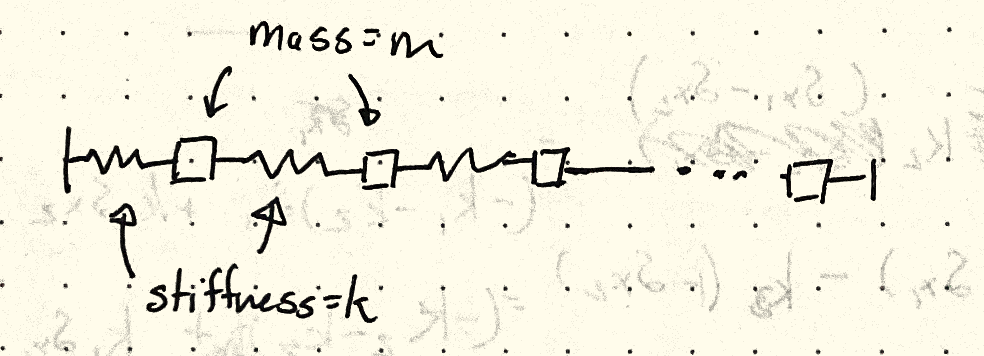 mass=m
stiffness=k